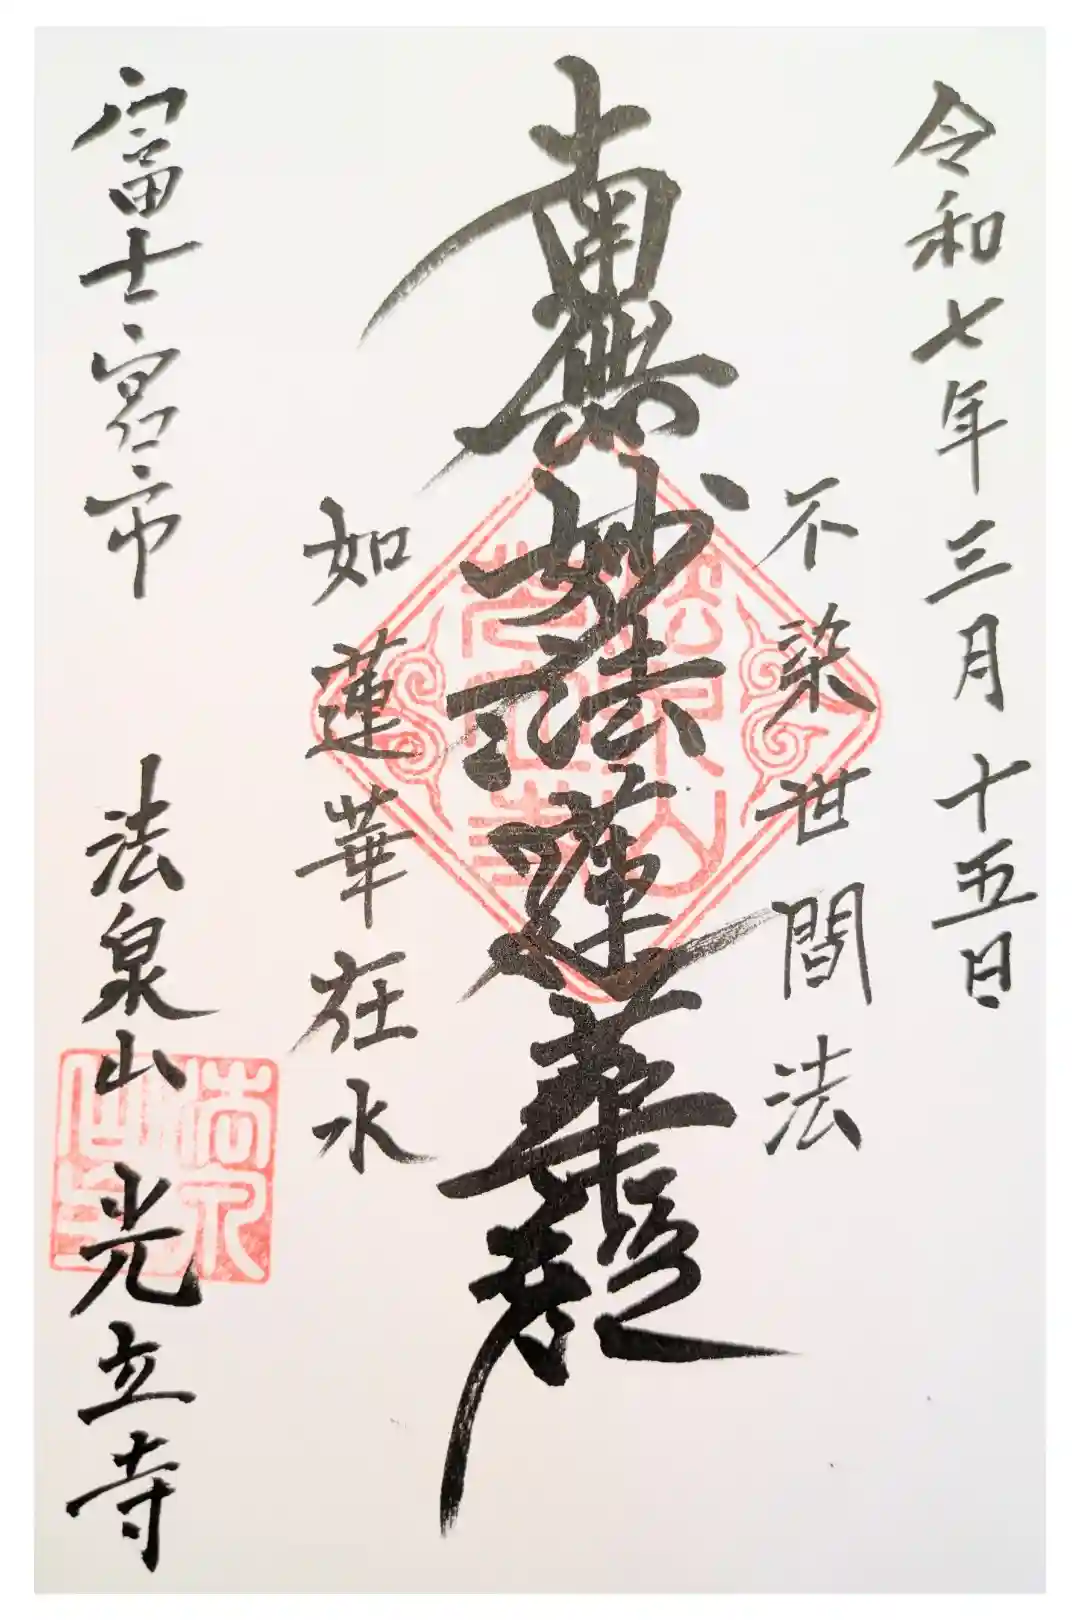 令和七年三月十五日
不染世間法
南無妙法蓮華経
如蓮華在水
富士宮市 法泉山 光立寺